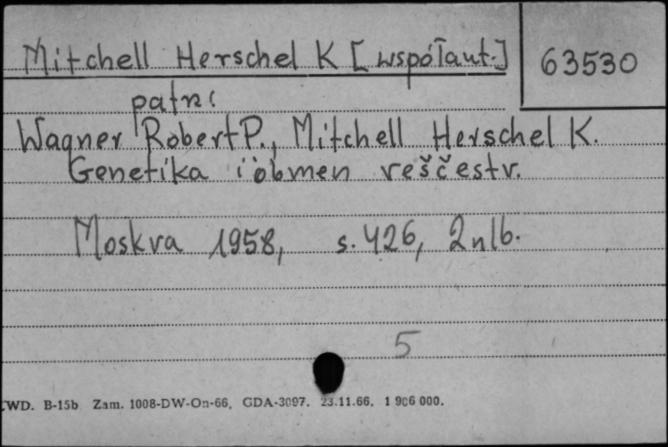 Mitchell Herschel K [współaut.]
63530
patrz:
Wagner Robert P., Mitchell Herschel K.
Genetika i obmen veščestv.
Moskva 1958, s. 426, 2 nlb.
5
WD. B-15b Zam. 1008-DW-On-66, GDA-3097. 23.11.66. 1 906 000.